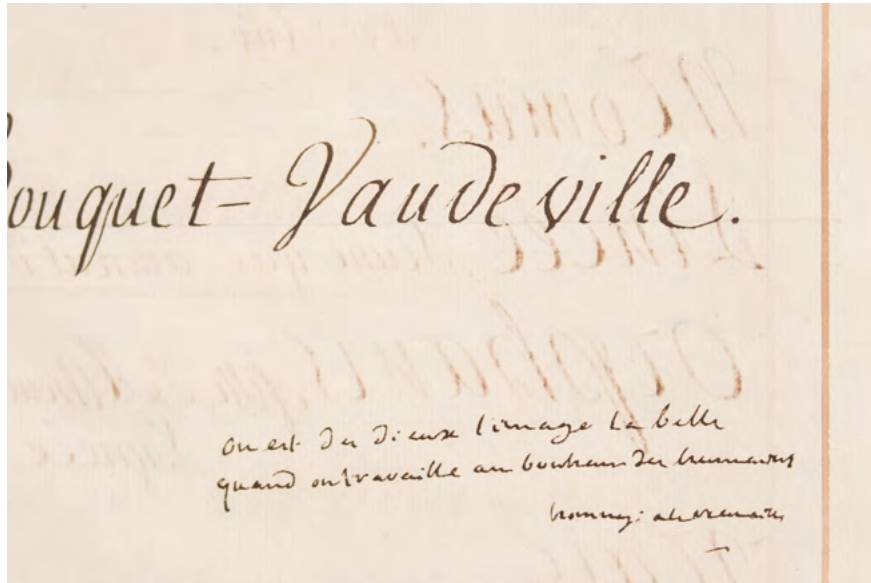 ouquet = Vaudeville.
on est des dieux l'image la belle
quand on travaille au bonheur des humains
hommage a la